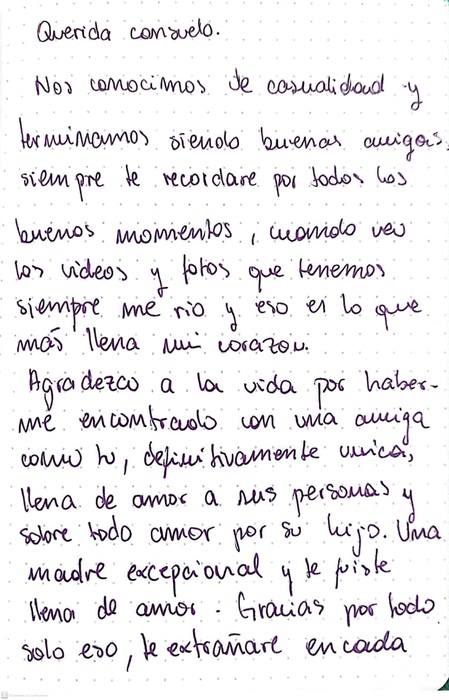 Querida consuelo.
Nos conocimos de casualidad y
terminamos siendo buenas amigas,
siempre te recordare por todos los
buenos momentos, cuando veo
los videos y fotos que tenemos
siempre me rio y eso es lo que
más llena mi corazon.
Agradezco a la vida por haber-
me encontrado con una amiga
como tu, definitivamente unica,
llena de amor a sus personas y
sobre todo amor por su hijo. Una
madre excepcional y te fuiste
llena de amor. Gracias por todo
solo eso, te extrañare en cada